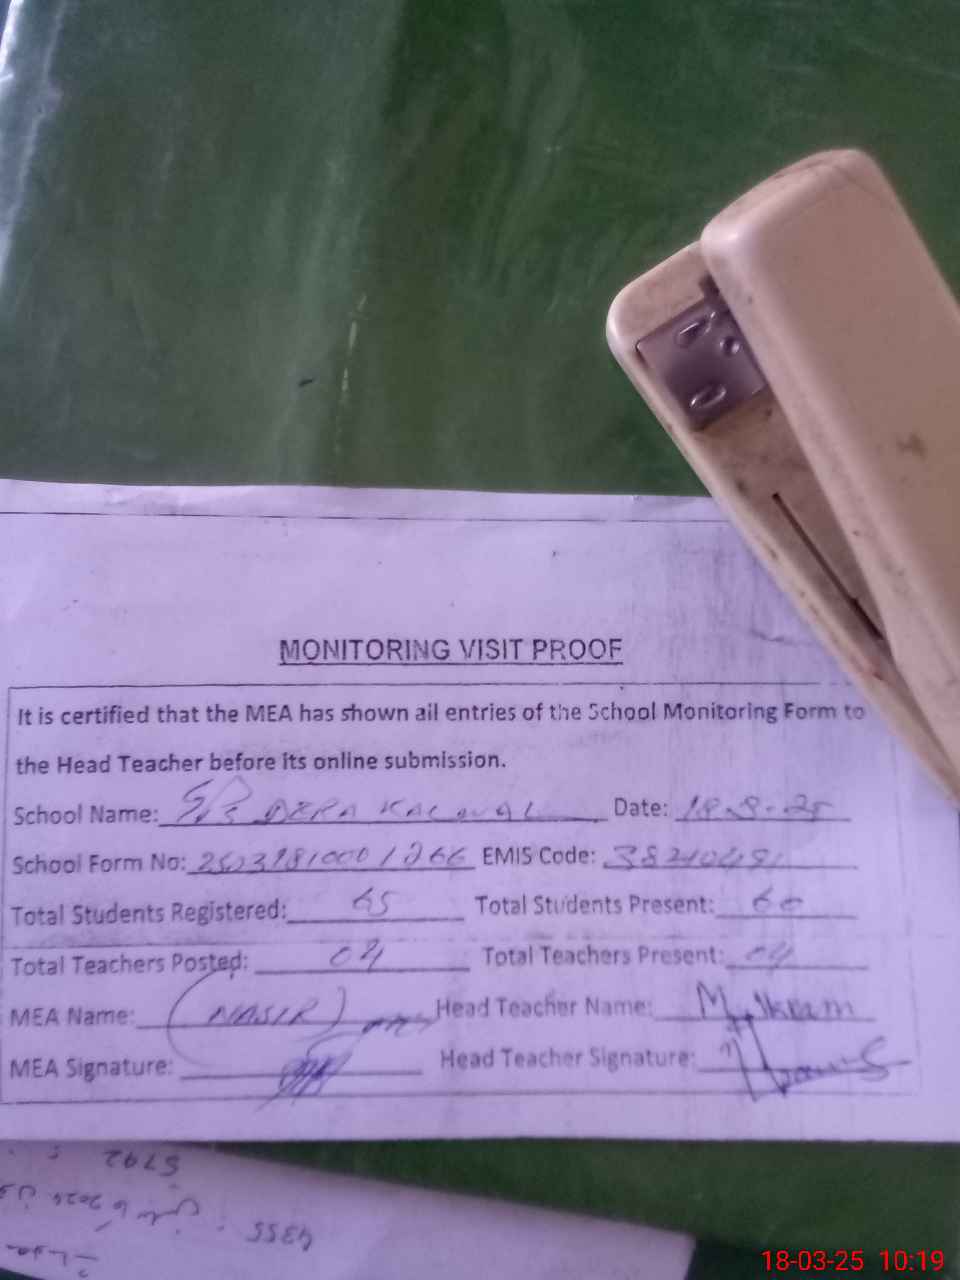 MONITORING VISIT PROOF
It is certified that the MEA has shown all entries of the School Monitoring Form to
the Head Teacher before its online submission.
School Name: DERA Date: 18-3-25
School Form No: EMIS Code:
Total Students Registered: 65 Total Students Present: 60
Total Teachers Posted: 04 Total Teachers Present: 04
MEA Name: (NASIR) Head Teacher Name: M. Ikram
MEA Signature: Head Teacher Signature:
5792
2024
4355
18-03-25 10:19